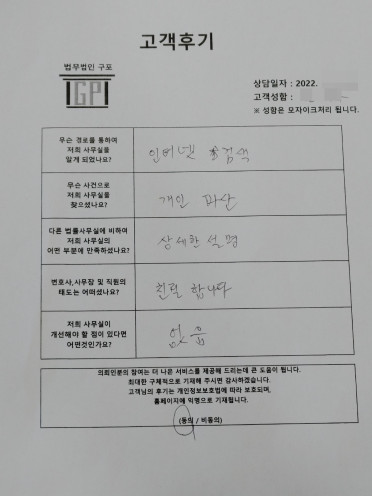 고객후기
법무법인 구포
GP
상담일자 : 2022.
고객성함 :
※ 성함은 모자이크처리 됩니다.
무슨 경로를 통하여
저희 사무실을
알게 되었나요?
인터넷 검색
무슨 사건으로
저희 사무실을
찾으셨나요?
개인 파산
다른 법률사무실에 비하여
저희 사무실의
어떤 부분에 만족하셨나요?
상세한 설명
변호사,사무장 및 직원의
태도는 어떠셨나요?
친절 합니다
저희 사무실이
개선해야 할 점이 있다면
어떤것인가요?
없음
의뢰인분의 참여는 더 나은 서비스를 제공해 드리는데 큰 도움이 됩니다.
최대한 구체적으로 기재해 주시면 감사하겠습니다.
고객님의 후기는 개인정보보호법에 따라 보호되며,
홈페이지에 익명으로 기재됩니다.
(동의 / 비동의)